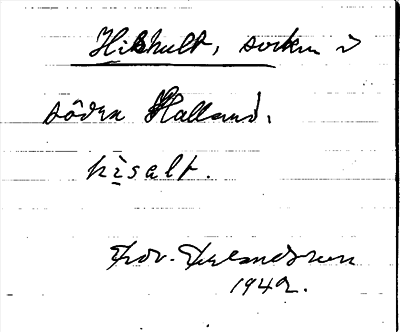 Hishult, socken i
södra Halland.
hisalt.
Thdr. Erlandsson
1942.